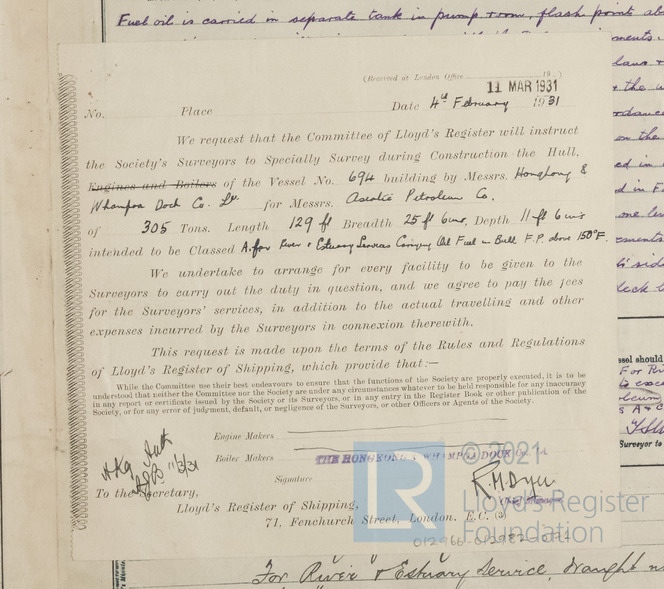 Fuel oil is carried in separate tank in pump room, flash point
(Received at London Office 19 )
11 MAR 1931
No. Place Date 4th February 1931
We request that the Committee of Lloyd's Register will instruct
the Society's Surveyors to Specially Survey during Construction the Hull,
Engines and Boilers of the Vessel No. 694 building by Messrs. Hongkong &
Whampoa Dock Co. Ld for Messrs. Asiatic Petroleum Co.
of 305 Tons. Length 129 ft Breadth 25 ft 6 ins, Depth 11 ft 6 ins
intended to be Classed A. for River & Estuary Services Carrying Oil Fuel in Bulk F.P. above 150°F.
We undertake to arrange for every facility to be given to the
Surveyors to carry out the duty in question, and we agree to pay the fees
for the Surveyors' services, in addition to the actual travelling and other
expenses incurred by the Surveyors in connexion therewith.
This request is made upon the terms of the Rules and Regulations
of Lloyd's Register of Shipping, which provide that:—
While the Committee use their best endeavours to ensure that the functions of the Society are properly executed, it is to be
understood that neither the Committee nor the Society are under any circumstances whatever to be held responsible for any inaccuracy
in any report or certificate issued by the Society or its Surveyors, or in any entry in the Register Book or other publication of the
Society, or for any error of judgment, default, or negligence of the Surveyors, or other Officers or Agents of the Society.
Engine Makers
Boiler Makers THE HONGKONG & WHAMPOA DOCK Co.
Signature
11/3/31
To the Secretary,
Lloyd's Register of Shipping,
71, Fenchurch Street, London. E.C. (3)
© 2021
LR
Lloyd's Register
Foundation
ssel should
For Ri
Surveyor to
For River & Estuary Service, draught